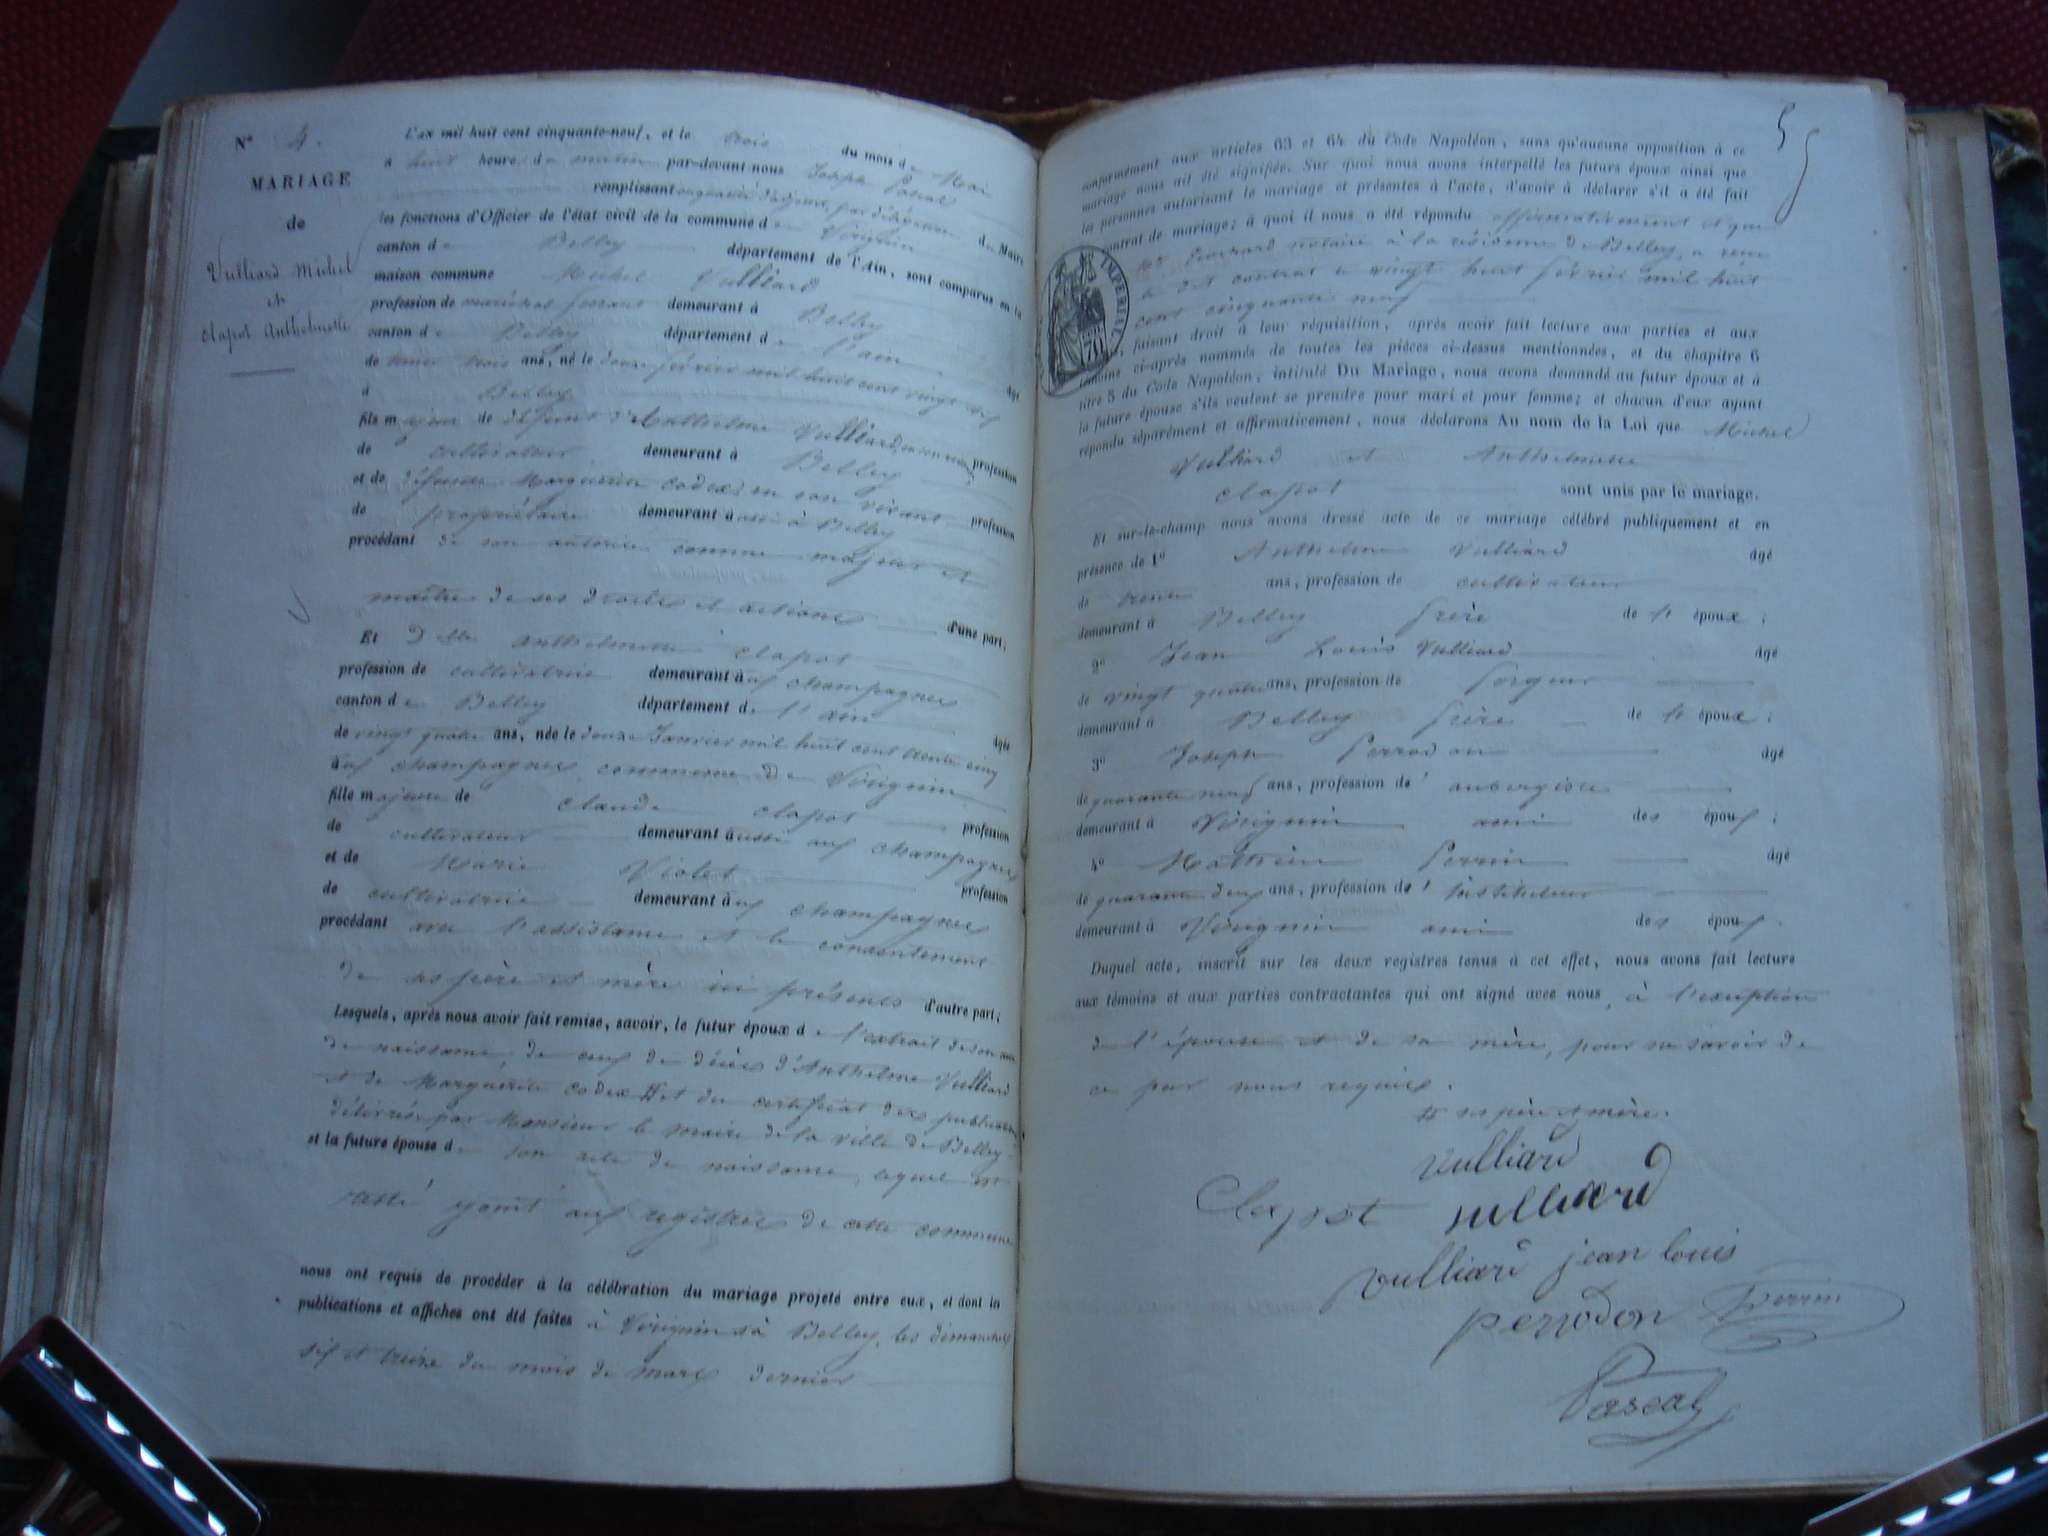 N° 4.
MARIAGE
de
Vulliard Michel
et
Clapot Anthelmette
L'an mil huit cent cinquante-neuf, et le trois du mois de Mai
à huit heures du matin par-devant nous Joseph Pascal
remplissant en qualité d'adjoint, par délégation du Maire
les fonctions d'Officier de l'état civil de la commune de Virignin
canton de Belley département de l'Ain, sont comparus en la
maison commune Michel Vulliard
profession de maréchal ferrant demeurant à Belley
canton de Belley département de l'ain âgé
de trente trois ans, né le douze février mil huit cent vingt six
à Belley
fils majeur de défunt d'Anthelme Vulliard, en son vivant profession
de cultivateur demeurant à Belley
et de défunte Marguerite Codex, en son vivant profession
de propriétaire demeurant aussi à Belley
procédant de son autorité comme majeur et
maître de ses droits et actions d'une part;
Et Dlle Anthelmette Clapot
profession de cultivatrice demeurant aux champagnes
canton de Belley département de l'ain âgée
de vingt quatre ans, née le douze Janvier mil huit cent trente cinq
aux champagnes commune de Virignin
fille majeure de Claude Clapot profession
de cultivateur demeurant aussi aux champagnes
et de Marie Violet profession
de cultivatrice demeurant aux champagnes
procédant avec l'assistance et le consentement
de ses père et mère ici présents d'autre part;
Lesquels, après nous avoir fait remise, savoir, le futur époux de l'extrait de son acte
de naissance, de ceux de décès d'Anthelme Vulliard
et de Marguerite Codex # et du certificat des publications
délivrés par Monsieur le maire de la ville de Belley
et la future épouse de son acte de naissance, lequel est
resté joint aux registres de cette commune
nous ont requis de procéder à la célébration du mariage projeté entre eux, et dont la
publications et affiches ont été faites à Virignin et à Belley, les dimanches
six et treize du mois de mars dernier
5
conformément aux articles 63 et 64 du Code Napoléon, sans qu'aucune opposition à ce
mariage nous ait été signifiée. Sur quoi nous avons interpellé les futurs époux ainsi que
les personnes autorisant le mariage et présentes à l'acte, d'avoir à déclarer s'il a été fait
contrat de mariage; à quoi il nous a été répondu affirmativement et que
notaire à la résidence de Belley, a reçu
le dit contrat le vingt huit février mil huit
cent cinquante neuf
IMPERIAL
70
faisant droit à leur réquisition, après avoir fait lecture aux parties et aux
témoins ci-après nommés de toutes les pièces ci-dessus mentionnées, et du chapitre 6
titre 5 du Code Napoléon, intitulé Du Mariage, nous avons demandé au futur époux et à
la future épouse s'ils veulent se prendre pour mari et pour femme; et chacun d'eux ayant
répondu séparément et affirmativement, nous déclarons Au nom de la Loi que Michel
Vulliard et Anthelmette
Clapot sont unis par le mariage.
Et sur-le-champ nous avons dressé acte de ce mariage célébré publiquement et en
présence de 1° Anthelme Vulliard âgé
de trente ans, profession de cultivateur
demeurant à Belley frère de l' époux;
2° Jean Louis Vulliard âgé
de vingt quatre ans, profession de forgeur
demeurant à Belley frère de l' époux;
3° Joseph Perrodon âgé
de quarante neuf ans, profession d' aubergiste
demeurant à Virignin ami des époux;
4° Mathieu Perrin âgé
de quarante deux ans, profession d' Instituteur
demeurant à Virignin ami des époux.
Duquel acte, inscrit sur les deux registres tenus à cet effet, nous avons fait lecture
aux témoins et aux parties contractantes qui ont signé avec nous, à l'exception
de l'épouse et de sa mère, pour ne savoir de
ce par nous requis.
# ses père et mère.
Vulliard
Clapot Vulliard
Vulliard jean louis
perrodon Perrin
Pascal